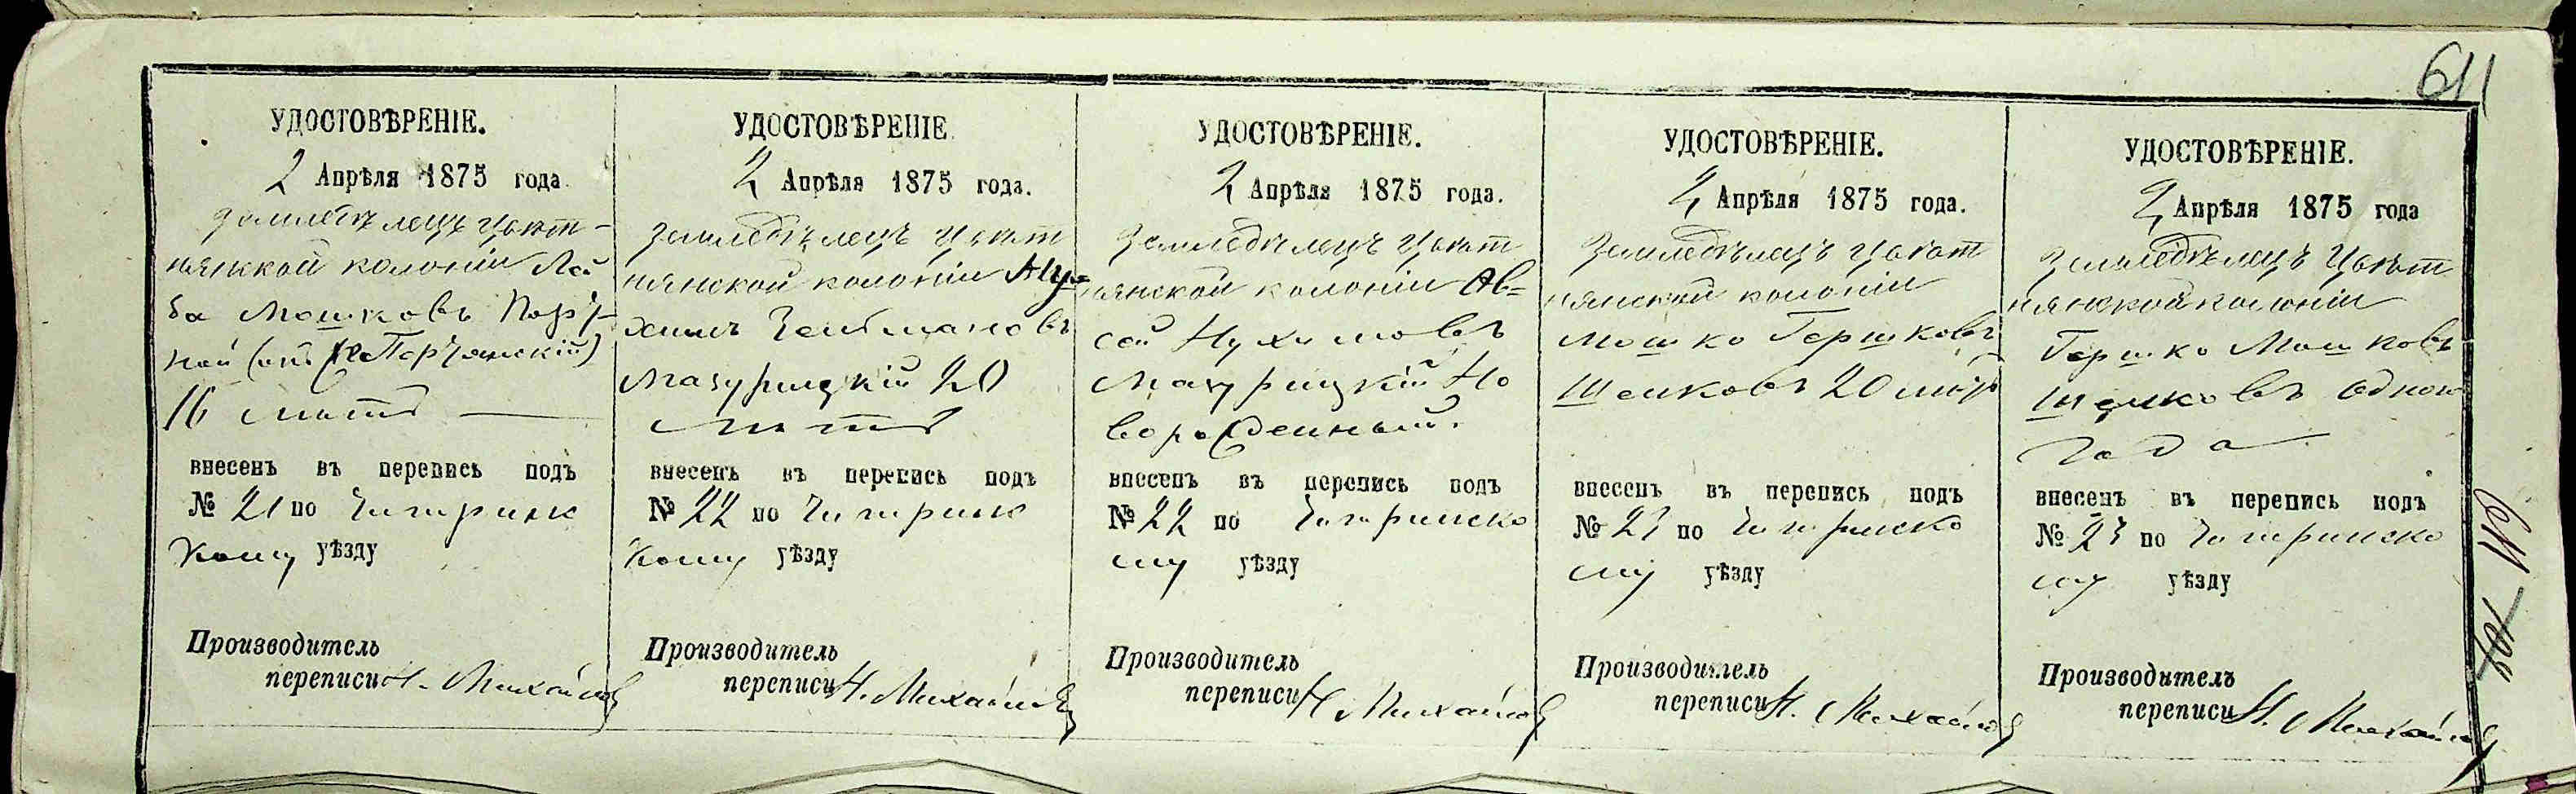 611
УДОСТОВѢРЕНІЕ.
2 Апрѣля 1875 года
Земледѣлецъ Цвѣт-
нянской колоніи Лей
ба Мошковъ
ной (онъ же
16 лѣтъ
внесенъ въ перепись подъ
№ 21 по Чигиринс
кому уѣзду
Производитель
переписи Н. Михайловъ
УДОСТОВѢРЕНІЕ
2 Апрѣля 1875 года.
Земледѣлецъ Цвѣт
нянской колоніи Ну-
химъ Зельмановъ
Мазурицкій 20
лѣтъ
внесенъ въ перепись подъ
№ 22 по Чигиринс
кому уѣзду
Производитель
переписи Н. Михайловъ
УДОСТОВѢРЕНІЕ.
2 Апрѣля 1875 года.
Земледѣлецъ Цвѣт
нянской колоніи Ав=
сей Нухимовъ
Мазурицкій Но
ворожденный.
внесенъ въ перепись подъ
№ 22 по Чигиринско
му уѣзду
Производитель
переписи Н. Михайловъ
УДОСТОВѢРЕНІЕ.
2 Апрѣля 1875 года.
Земледѣлецъ Цвѣт
нянской колоніи
Мошко Гершковъ
Шейковъ 20 лѣтъ
внесенъ въ перепись подъ
№ 23 по Чигиринско
му уѣзду
Производитель
переписи Н. Михайловъ
УДОСТОВѢРЕНІЕ.
2 Апрѣля 1875 года
Земледѣлецъ Цвѣт
нянской колоніи
Гершко Мошковъ
Шейковъ одного
года
внесенъ въ перепись подъ
№ 23 по Чигиринско
му уѣзду
Производитель
переписи Н. Михайловъ
611